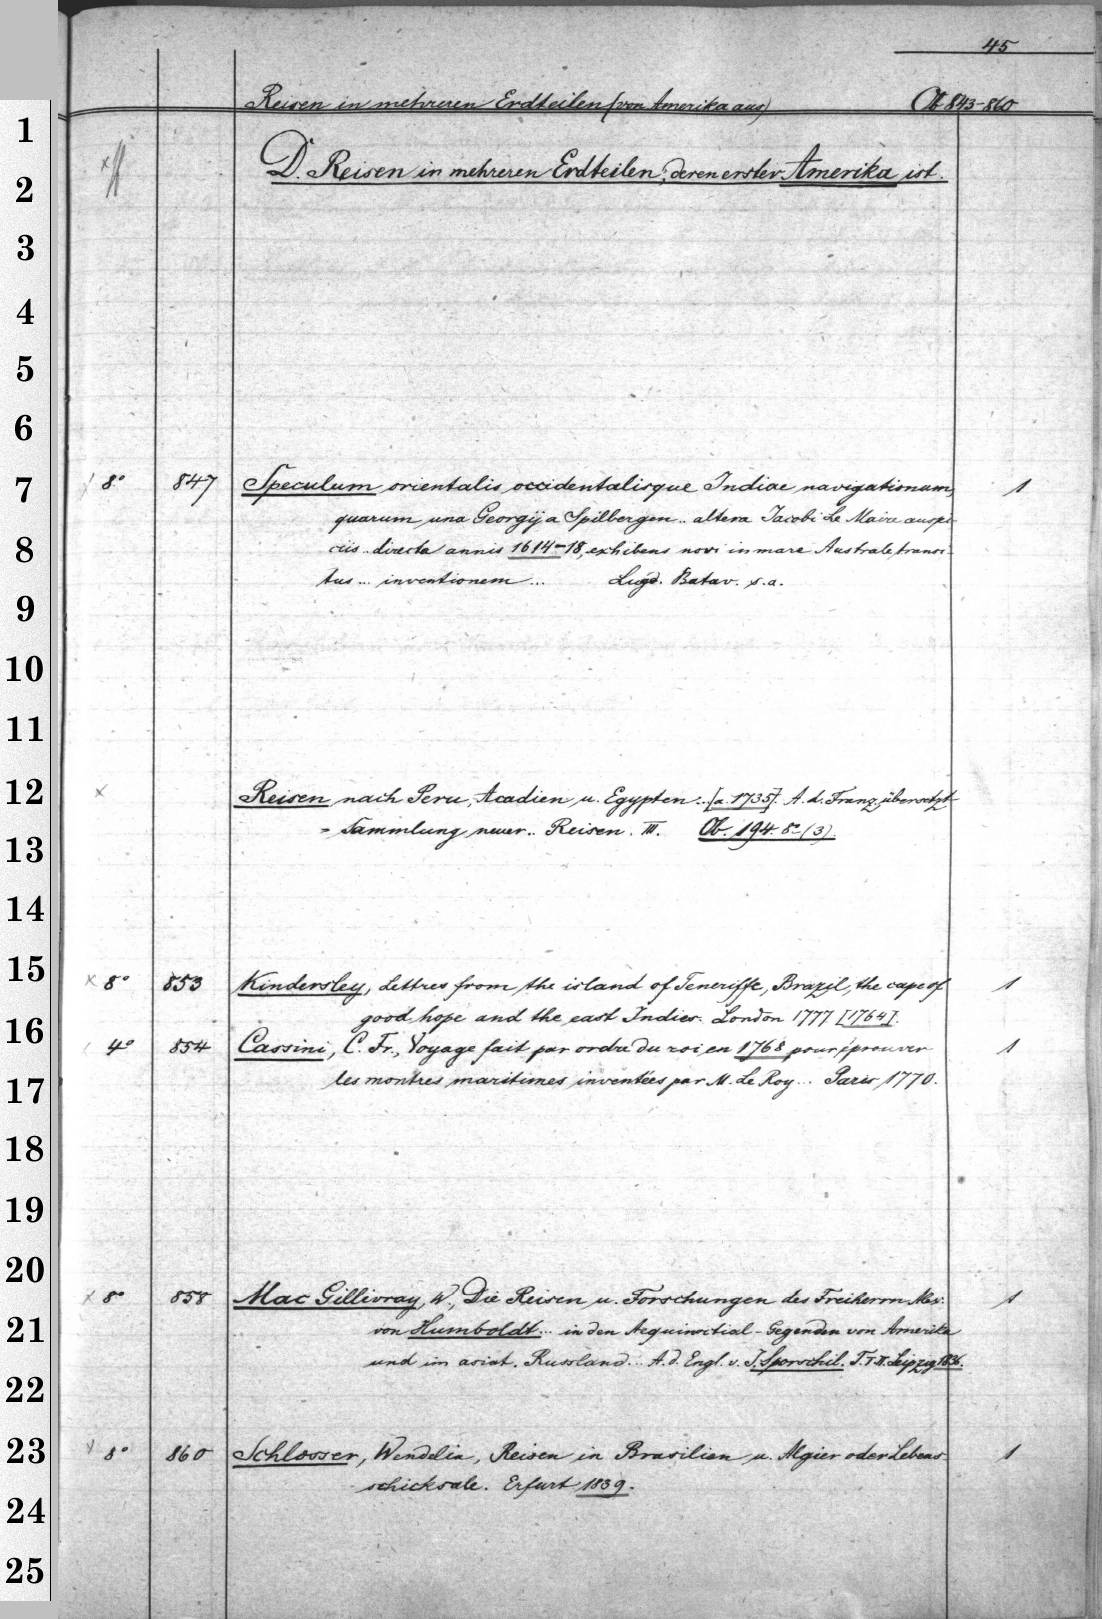 45
Reisen in mehreren Erdteilen (von Amerika aus) Ob 843-860
1
2 D. Reisen in mehreren Erdteilen, deren erster Amerika ist.
3
4
5
6
7 8° 847 Speculum orientalis occidentalisque Indiae navigationum, 1
quarum una Georgij a Spilbergen .. altera Jacobi Le Maire auspi-
8 ciis .. directa annis 1614-18, exhibens novi in mare Australe transi-
tus ... inventionem ... Lugd. Batav. s. a.
9
10
11
12 × Reisen nach Peru, Acadien u. Egypten .. [a. 1735]. A. d. Franz. übersetzt
= Sammlung neuer .. Reisen. III. Ob. 194. 8° (3).
13
14
15 × 8° 853 Kindersley, Lettres from the island of Teneriffe, Brazil, the cape of 1
good hope and the east Indies. London 1777 [1764].
16 4° 854 Cassini, C. Fr., Voyage fait par ordre du roi en 1768 pour éprouver 1
les montres maritimes inventées par M. Le Roy ... Paris 1770.
17
18
19
20
× 8° 858 Mac Gillivray, W., Die Reisen u. Forschungen des Freiherrn Alex. 1
21 von Humboldt ... in den Aequinoctial-Gegenden von Amerika
und im asiat. Russland ... A. d. Engl. v. J. Sporschil. T. I. II. Leipzig 1836.
22
23 × 8° 860 Schlosser, Wendelin, Reisen in Brasilien u. Algier oder Lebens- 1
schicksale. Erfurt 1839.
24
25